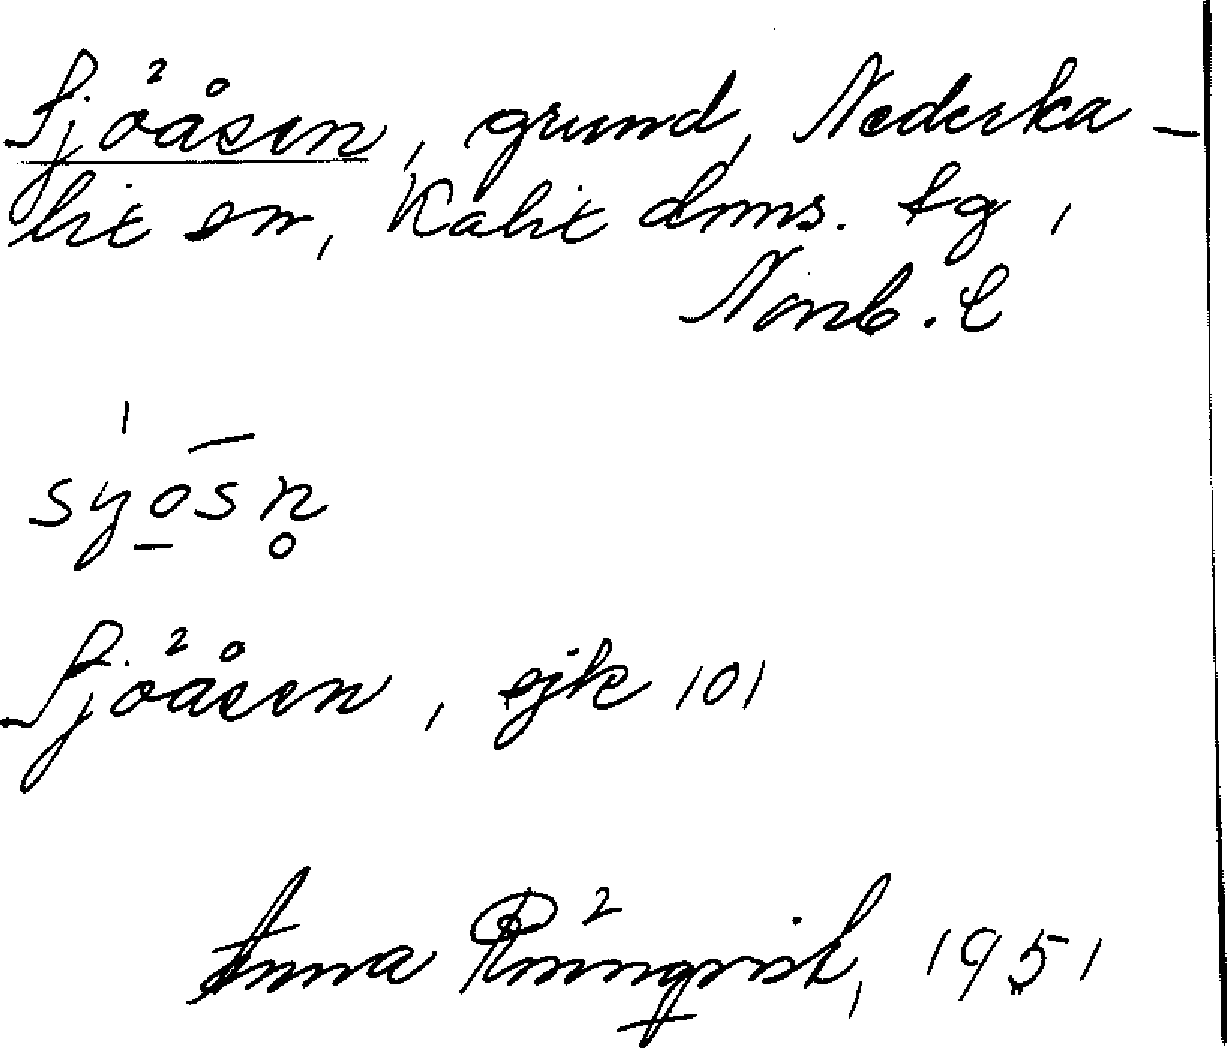 Sjöåsen, grund, Nederka-
lix sn, Kalix dms. tg,
Norrb. l
syosn̥
Sjöåsen, ejk 101
Anna Rönnqvist, 1951